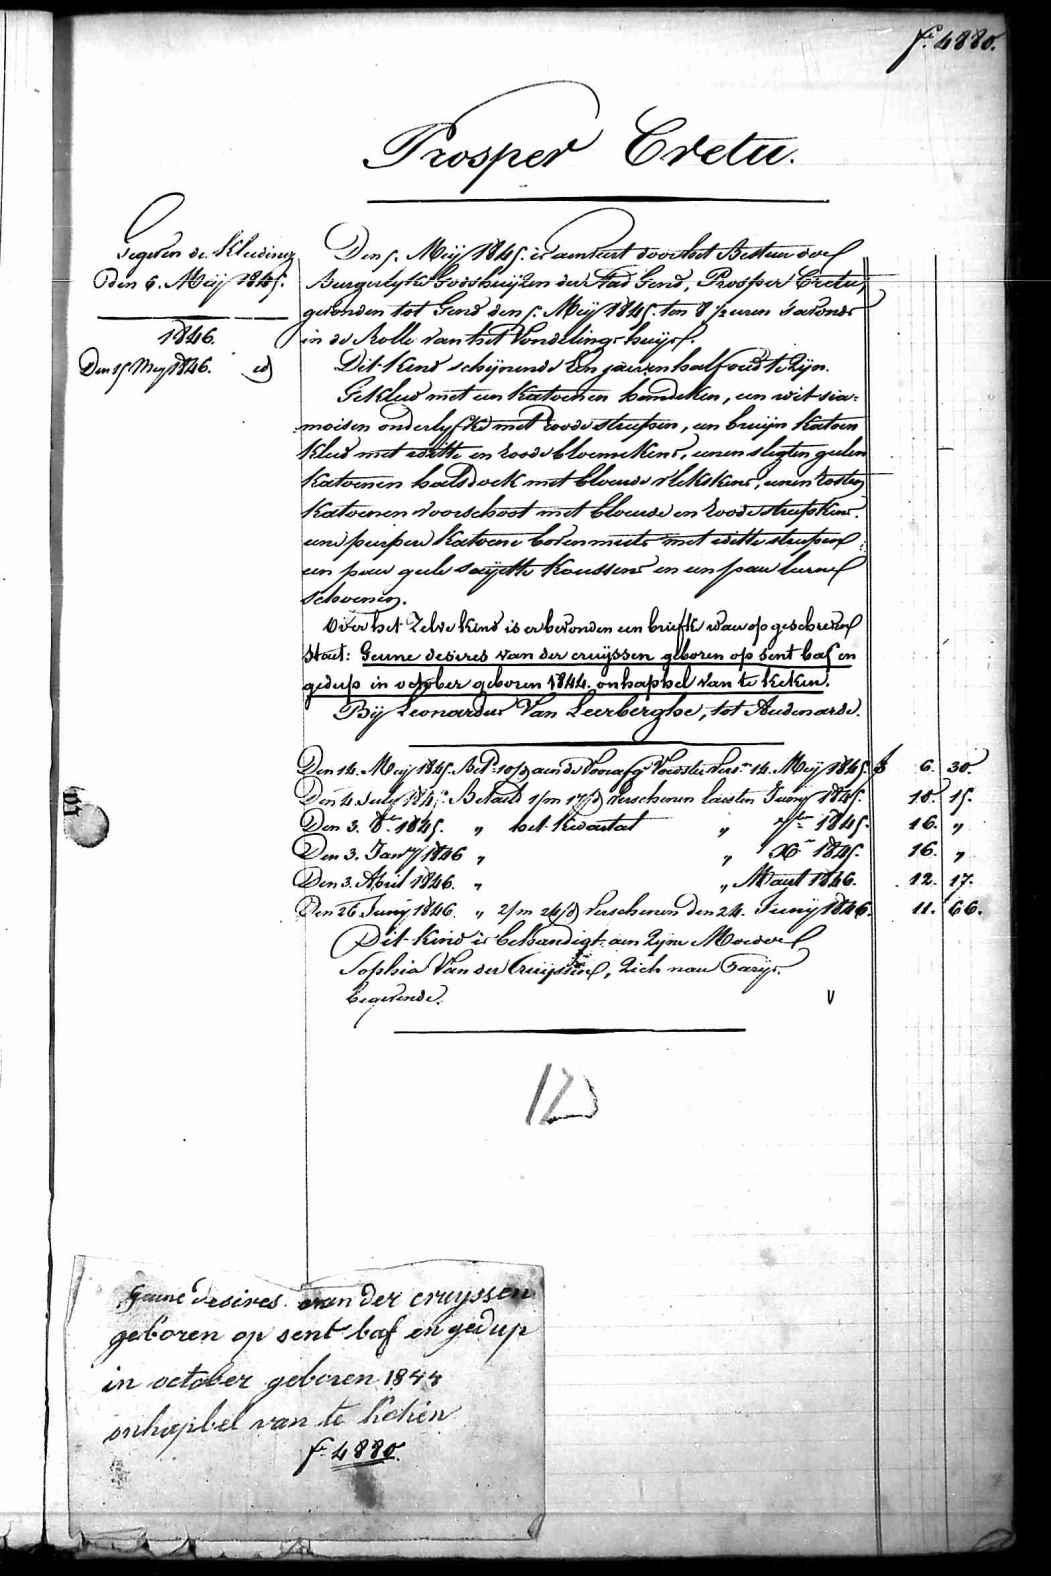 f.º 4880.
Prosper Cretu.
Gegeven de Kleeding
Den 6. Meij 1845.
1846.
Den 15 Meij 1846. id
Den 5. Meij 1845. is aenveert door het Bestuer der
Burgerlyke Godshuijzen der Stad Gend, Prosper Cretu,
gevonden tot Gend den 5. Meij 1845. ten 8 ½ uren 's avonds
in de Rolle van het Vondelings huijs.
Dit Kind schijnende Een jaer en half oud te Zijn.
Gekleed met een Katoenen hemdeken, een wit sia-
moisen onderlyfke met roode streepen, een bruijn Katoen
Kleed met witte en roode bloemekens, eenen slegten geelen
Katoenen halsdoek met blouwe vlekskens, eenen rosten
Katoenen voorschoot met blouwe en roode streepkens.
eene peirpere Katoene bovenmuts met witte streepen
een paer geele sayette Koussens en een paer leeren
schoenen.
Over het Zelve Kind is er bevonden een briefke waer op geschreven
staet: Geune desires van der cruijssen geboren op sent baf en
gedup in october geboren 1844. onhapbel van te keken.
Bij Leonardus Van Leerberghe, tot Audenarde.
Den 14. Meij 1845. Bet. 10/d aen de Voorafg Voedster vers.n 14. Meij 1845. f 6. 30.
Den 4 July 1845. Betaeld 1/m 17/d verschenen laesten Juny 1845. 18. 15.
Den 3. 8.bre 1845. „ het Kwartael „ 7.bre 1845. 16. „
Den 3. Janry 1846 „ „ X.bre 1845. 16. „
Den 3. April 1846. „ „ Maert 1846. 12. 17.
Den 26 Junij 1846. „ 2/m 24/d verschenen den 24. Junij 1846. 11. 66.
Dit Kind is behandigt aen Zijne Moeder
Sophia Van der Cruijssen, Zich naer Parijs
begevende.
V
12
geune desires van der cruyssen
geboren op sent baf en gedup
in october geboren 1844
onhapbel van te keken
f.º 4880.